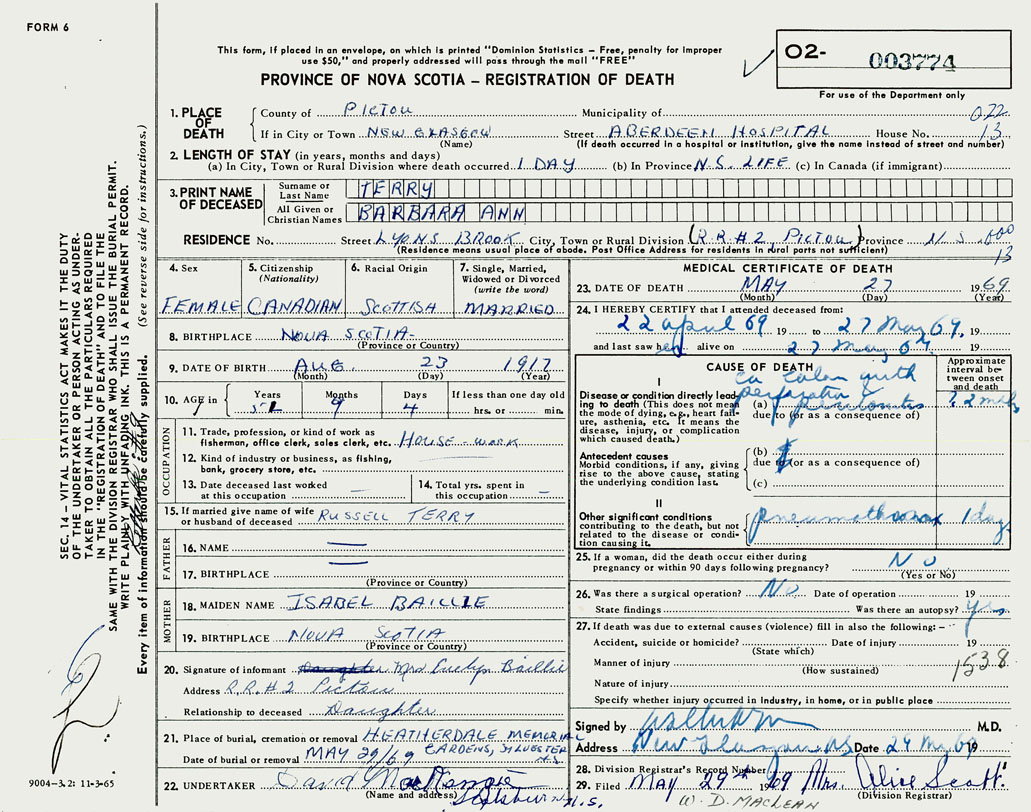 FORM 6
This form, if placed in an envelope, on which is printed "Dominion Statistics – Free, penalty for improper
use $50," and properly addressed will pass through the mail "FREE"
PROVINCE OF NOVA SCOTIA – REGISTRATION OF DEATH
O2- 003774
For use of the Department only
1. PLACE OF DEATH
County of PICTOU Municipality of 022
If in City or Town NEW GLASGOW Street ABERDEEN HOSPITAL House No. 13
(Name) (If death occurred in a hospital or institution, give the name instead of street and number)
2. LENGTH OF STAY (in years, months and days)
(a) In City, Town or Rural Division where death occurred 1 DAY (b) In Province N.S. LIFE (c) In Canada (if immigrant)
3. PRINT NAME OF DECEASED
Surname or Last Name TERRY
All Given or Christian Names BARBARA ANN
RESIDENCE No. Street LYONS BROOK City, Town or Rural Division (R.R#2 PICTOU) Province N.S. 600
(Residence means usual place of abode. Post Office Address for residents in rural parts not sufficient) 13
4. Sex FEMALE
5. Citizenship (Nationality) CANADIAN
6. Racial Origin SCOTTISH
7. Single, Married, Widowed or Divorced (write the word) MARRIED
8. BIRTHPLACE NOVA SCOTIA-
(Province or Country)
9. DATE OF BIRTH AUG. 23 1917
(Month) (Day) (Year)
10. AGE in Years Months Days If less than one day old
9 4 hrs. or min.
OCCUPATION
11. Trade, profession, or kind of work as
fisherman, office clerk, sales clerk, etc. HOUSE-WORK
12. Kind of industry or business, as fishing,
bank, grocery store, etc.
13. Date deceased last worked at this occupation —
14. Total yrs. spent in this occupation —
15. If married give name of wife or husband of deceased RUSSELL TERRY
FATHER
16. NAME —
17. BIRTHPLACE —
(Province or Country)
MOTHER
18. MAIDEN NAME ISABEL BAILLIE
19. BIRTHPLACE NOVA SCOTIA
(Province or Country)
20. Signature of informant Daughter Mrs Evelyn Baillie
Address R.R.#2 Pictou
Relationship to deceased Daughter
21. Place of burial, cremation or removal HEATHERDALE MEMORIAL
GARDENS, SYLVESTER
Date of burial or removal MAY 29/69 N.S.
22. UNDERTAKER David
(Name and address) Scotsburn N.S.
MEDICAL CERTIFICATE OF DEATH
23. DATE OF DEATH MAY 27 1969
(Month) (Day) (Year)
24. I HEREBY CERTIFY that I attended deceased from:
22 april 69 19 to 27 May 69, 19
and last saw her alive on 27 May 69 19
CAUSE OF DEATH
Approximate interval between onset and death
I
Disease or condition directly leading to death (This does not mean the mode of dying, e.g., heart failure, asthenia, etc. It means the disease, injury, or complication which caused death.)
ca colon with
perforation
(a)
due to (or as a consequence of)
Antecedent causes
Morbid conditions, if any, giving rise to the above cause, stating the underlying condition last.
(b)
due to (or as a consequence of)
(c)
II
Other significant conditions
contributing to the death, but not related to the disease or condition causing it.
pneumothorax 1 day
25. If a woman, did the death occur either during
pregnancy or within 90 days following pregnancy? NO
(Yes or No)
26. Was there a surgical operation? No Date of operation 19
State findings Was there an autopsy? yes
27. If death was due to external causes (violence) fill in also the following: –
Accident, suicide or homicide? Date of injury 19
(State which)
Manner of injury 1538
(How sustained)
Nature of injury
Specify whether injury occurred in industry, in home, or in public place
Signed by M.D.
Address New Glasgow NS Date 29 May 69 19
28. Division Registrar's Record Number
29. Filed MAY 29th 1969 Mrs. Alice Scott.
(Division Registrar)
W. D. MACLEAN
SEC. 14 – VITAL STATISTICS ACT MAKES IT THE DUTY
OF THE UNDERTAKER OR PERSON ACTING AS UNDER-
TAKER TO OBTAIN ALL THE PARTICULARS REQUIRED
IN THE "REGISTRATION OF DEATH" AND TO FILE THE
SAME WITH THE DIVISION REGISTRAR WHO SHALL ISSUE THE BURIAL PERMIT.
WRITE PLAINLY WITH UNFADING INK. THIS IS A PERMANENT RECORD.
Every item of information should be carefully supplied. (See reverse side for instructions.)
9004-3.2: 11-3-65